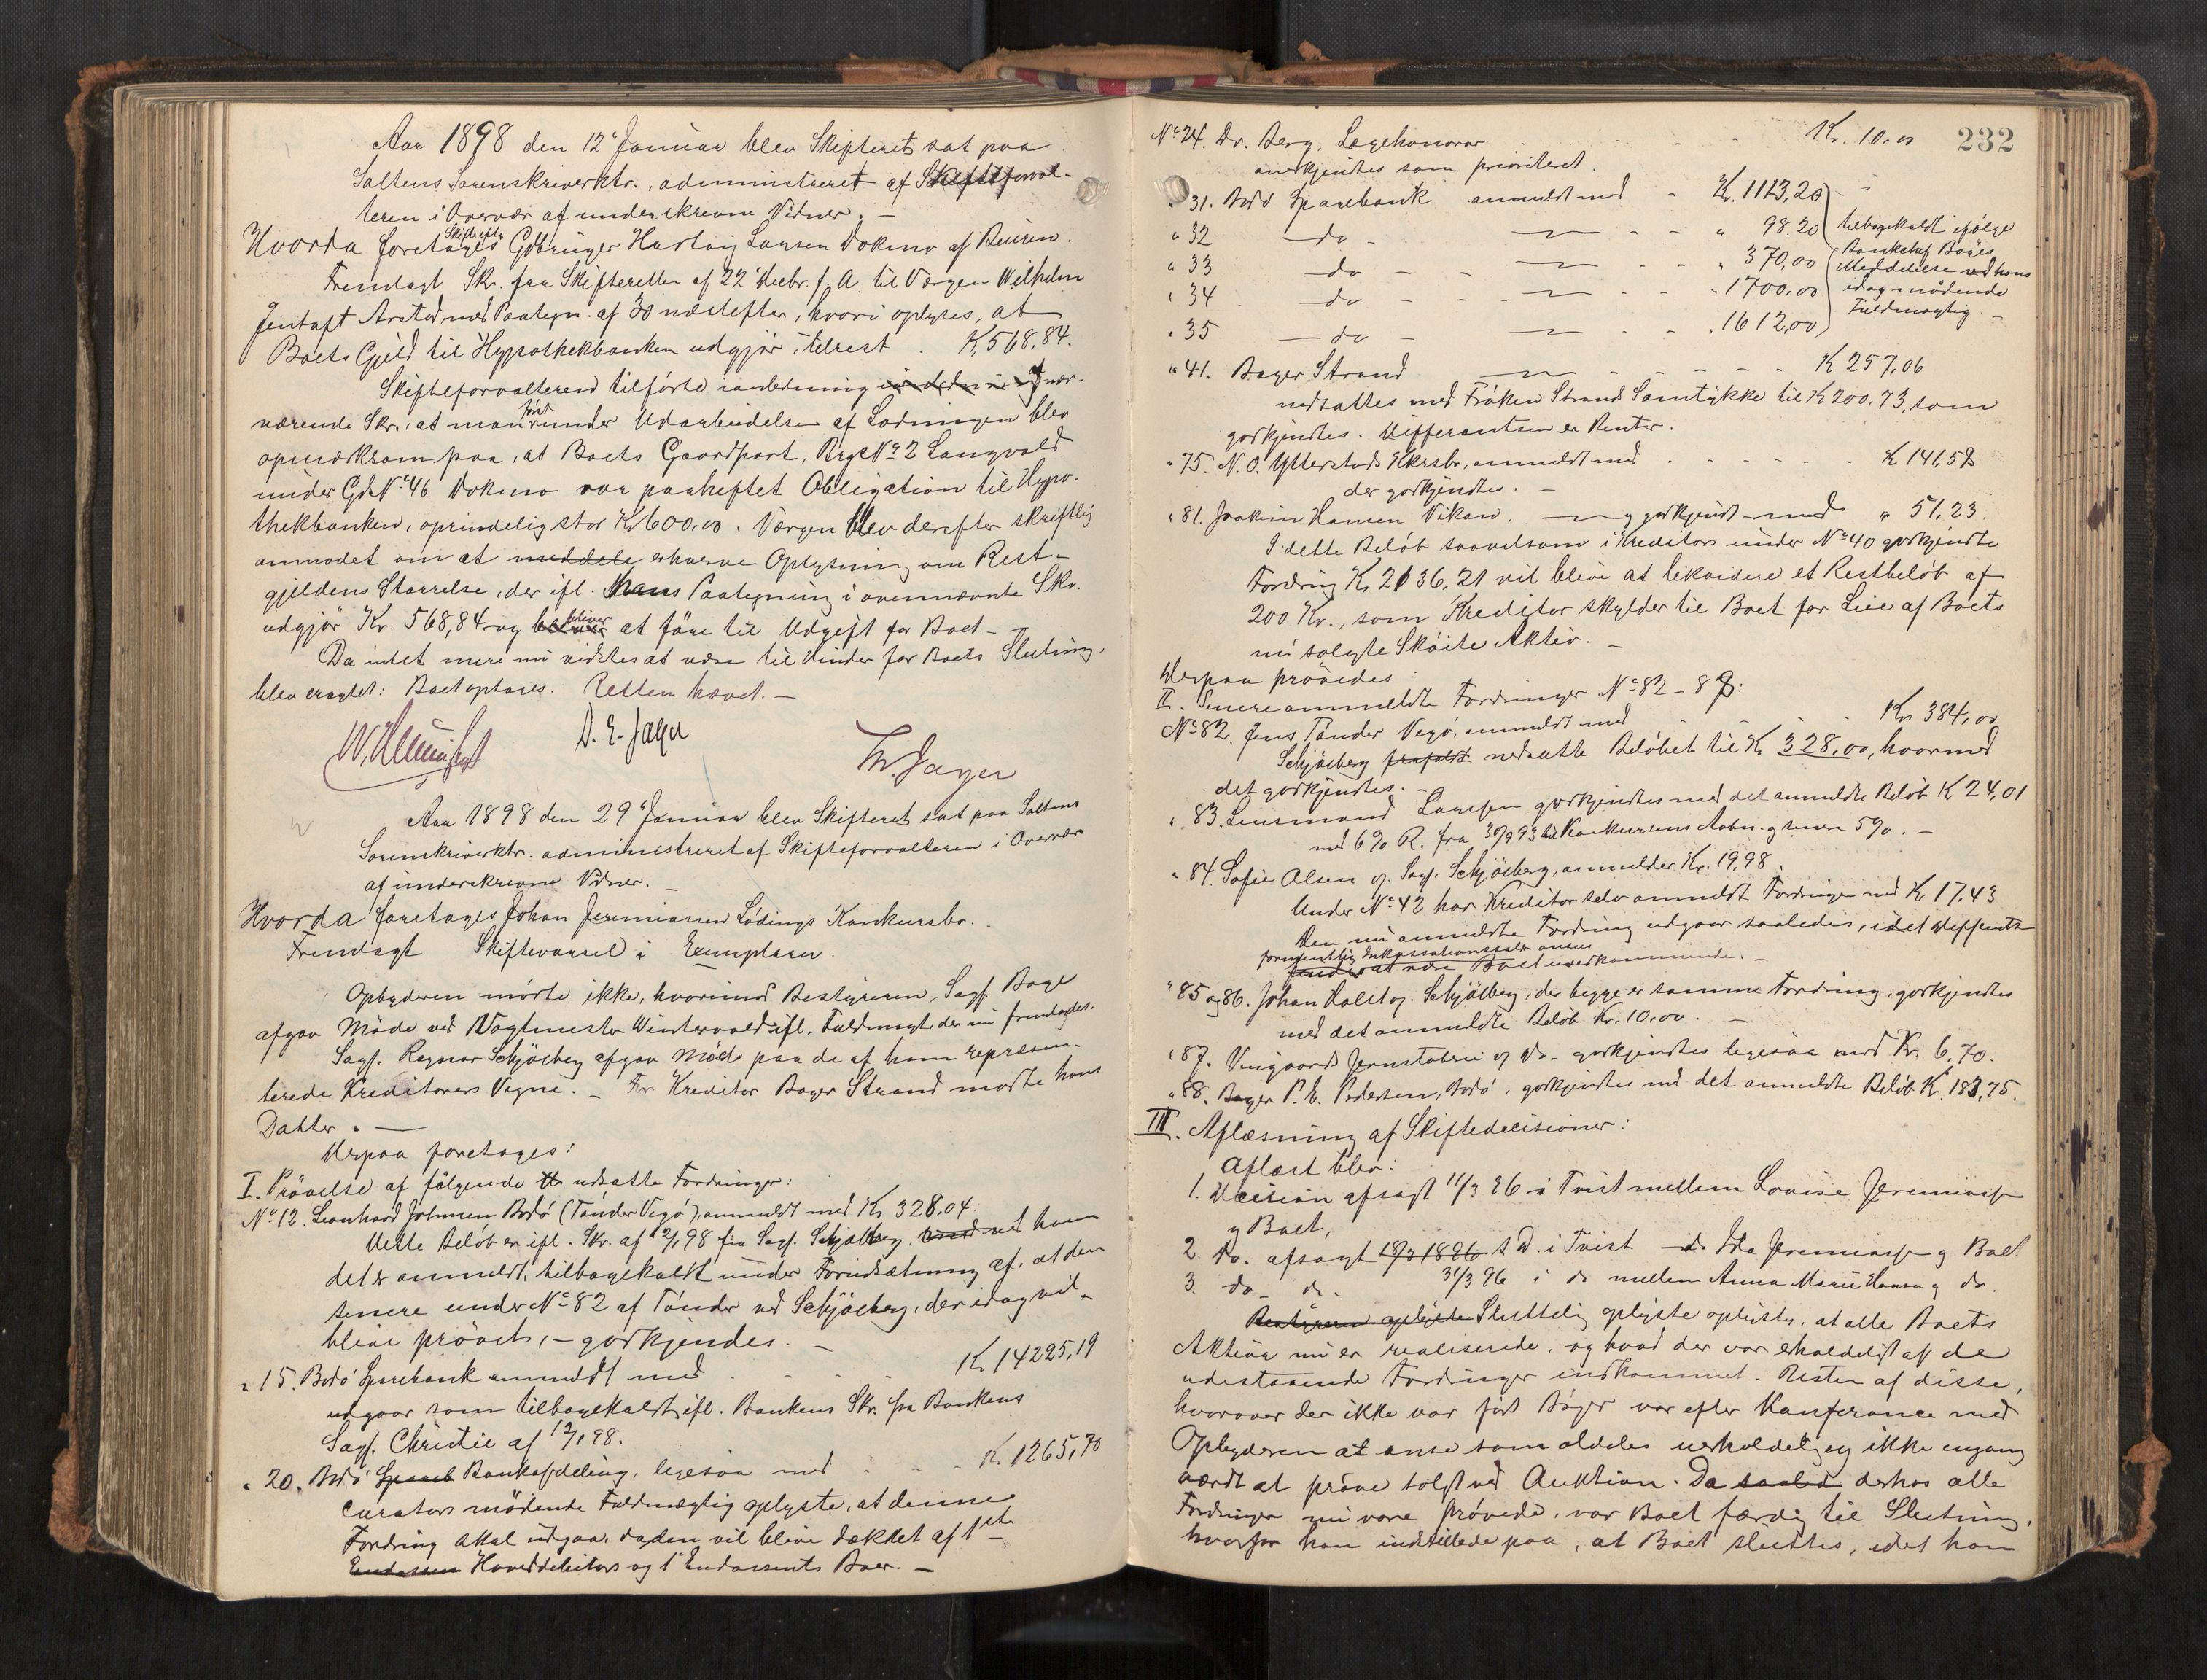 Aar 1898 den 12' Januar blev Skifteret sat paa
Saltens Sorenskriverktr., administreret af Skifteforval-
teren i Overvær af underskrevne Vidner. —
Hvorda foretages Skifte efter Gdbruger Hartvig Larsen Dokmo af Beiren.
Fremlagt Skr. fra Skifteretten af 22' Decbr. f. A. til Værgen Wilhelm
Jentoft Arstad med Paategn. af 30 næstefter, hvori oplyses, at
Boets Gjeld til Hypothekbanken udgjør, tilrest . K. 568,84.
Skifteforvalteren tilførte i anledning af nær-
værende Skr., at man først under Udarbeidelsen af Lodningen blev
opmærksom paa, at Boets Gaardpart, Brgs No 2 Langvald
under Gds No 46 Dokmo var paaheftet Obligation til Hypo-
thekbanken, oprindelig stor Kr. 600,00. Værgen blev derefter skriftlig
anmodet om at meddele erhverve Oplysning om Rest-
gjeldens Størrelse, der ifl. hans Paategning i ovennævnte Skr.
udgjør Kr. 568,84 og bliver at føre til Udgift for Boet. —
Da intet mere nu vidstes at være til Hinder for Boets Slutning,
blev eragtet: Boet optages. Retten hævet. —
D. E. Jager
Th. Jager
Aar 1898 den 29' Januar blev Skifteret sat paa Saltens
Sorenskriverktr. administreret af Skifteforvalteren i Overvær
af underskrevne Vidner. —
Hvorda foretages Johan Jeremiassen Lødings Konkursbo.
Fremlagt Skiftevarsel i Exemplarer.
Opbyderen mødte ikke, hvorimod Bestyreren, Sagf. Boge
afgav Møde ved Vagtmester Wintervold ifl. Fuldmagt, der nu fremlagdes.
Sagf. Ragnar Schjølberg afgav Møde paa de af ham repræsen-
terede Kreditorers Vegne. — For Kreditor Bager Strand mødte hans
Datter. —
Derpaa foretages:
I. Prøvelse af følgende udsatte Fordringer:
No 12. Leonhard Johnsen Bodø (Tønder Vegø), anmeldt med Kr. 328,04.
Dette Beløb er ifl. Skr. af 12/1 98 fra Sagf. Schjølberg, ved ham
det er anmeldt, tilbagekaldt under Forudsætning af, at den
senere under No 82 af Tønder ved Schjølberg, der idag vil
blive prøvet, — godkjendes. —
" 15. Bodø Sparebank anmeldt med . . . Kr. 14225,19
udgaar som tilbagekaldt ifl. Bankens Skr. fra Bankens
Sagf. Christie af 12/1 98.
" 20. Bodø Spareb Bankafdeling, ligesaa med . . . K. 1265,70
Curators mødende Fuldmægtig oplyste, at denne
Fordring skal udgaa, da den vil blive dækket af 1ste
Endossen Hoveddebitors og 1' Endossents Boer. —
232
No 24. Dr. Berg, Lægehonorar . . . Kr. 10,00
anerkjendtes som prioriteret.
" 31. Bodø Sparebank anmeldt med - Kr. 1113,20
" 32 — do — " 98,20 tilbagekaldt ifølge
" 33 — do — " 370,00 Bankchef Bøges
Meddelelse ved hans
" 34 — do — " 1700,00 idag mødende
" 35 — do — " 1612,00 Fuldmægtig. —
" 41. Bager Strand — K 257,06
nedsattes med Frøken Strands Samtykke til K 200,73, som
godkjendtes. Differentsen er Renter.
" 75. N. O. Ytterstads Kkrsbo, anmeldt med . . . K 141,58
der godkjendtes. —
" 81. Joakim Hansen Vikan, — og godkjendt med " 51,23.
I dette Beløb saavelsom i Kreditors under No 40 godkjendte
Fordring Kr. 2136,21 vil blive at likvidere et Restbeløb af
200 Kr., som Kreditor skylder til Boet for Leie af Boets
nu solgte Skøite Aktiv. —
Derpaa prøvedes
II. Senere anmeldte Fordringer No 82 - 88:
No 82. Jens Tønder Vegø, anmeldt med . . . Kr. 384,00
Schjølberg frafaldt nedsatte Beløbet til Kr 328,00, hvormed
det godkjendtes. —
" 83. Lensmand Larssen godkjendtes med det anmeldte Beløb K 24,01
med 6% R. fra 30/9 93 til Konkursens Aabn. og senere 5%. —
" 84. Sofie Olsen v. Sagf. Schjølberg, anmelder Kr. 19,98.
Under No 42 har Kreditor selv anmeldt Fordringen med Kr 17,43
Den nu anmeldte Fordring udgaar saaledes, idet Differents
formentlig Inkassationssalær ansees
Boet uvedkommende. —
" 85 og 86. Johan Holst v. Schjølberg, der begge er samme Fordring, godkjendtes
med det anmeldte Beløb Kr. 10,00. —
" 87. Vingaards Jernstøberi v. Do. godkjendtes ligesaa med Kr. 6,70.
" 88. Bager P. E. Pedersen, Bodø, godkjendtes med det anmeldte Beløb K. 183,75.
III. Aflæsning af Skiftedecisioner:
Aflæst blev:
1. Decision afsagt 11/3 96 i Tvist mellem Lovise Jeremiass
og Boet,
2. Do. afsagt 18/3 1896 s. D. i Tvist — do Ida Jeremiass og Boet
3. do — do — 31/3 96 i do mellem Anna Marie Hansen og do.
Bestyreren oplyste Sluttelig oplyste oplystes, at alle Boets
Aktiva nu er realiserede, og hvad der var erholdeligt af de
udestaaende Fordringer indkommet. Resten af disse,
hvorover der ikke var ført Bøger var efter Konferance med
Opbyderen at anse som aldeles uerholdelig og ikke engang
værdt at prøve solgt ved Auktion. Da saaled derhos alle
Fordringer nu vare prøvede, var Boet færdig til Slutning,
hvorfor han indstillede paa, at Boet sluttes, idet han